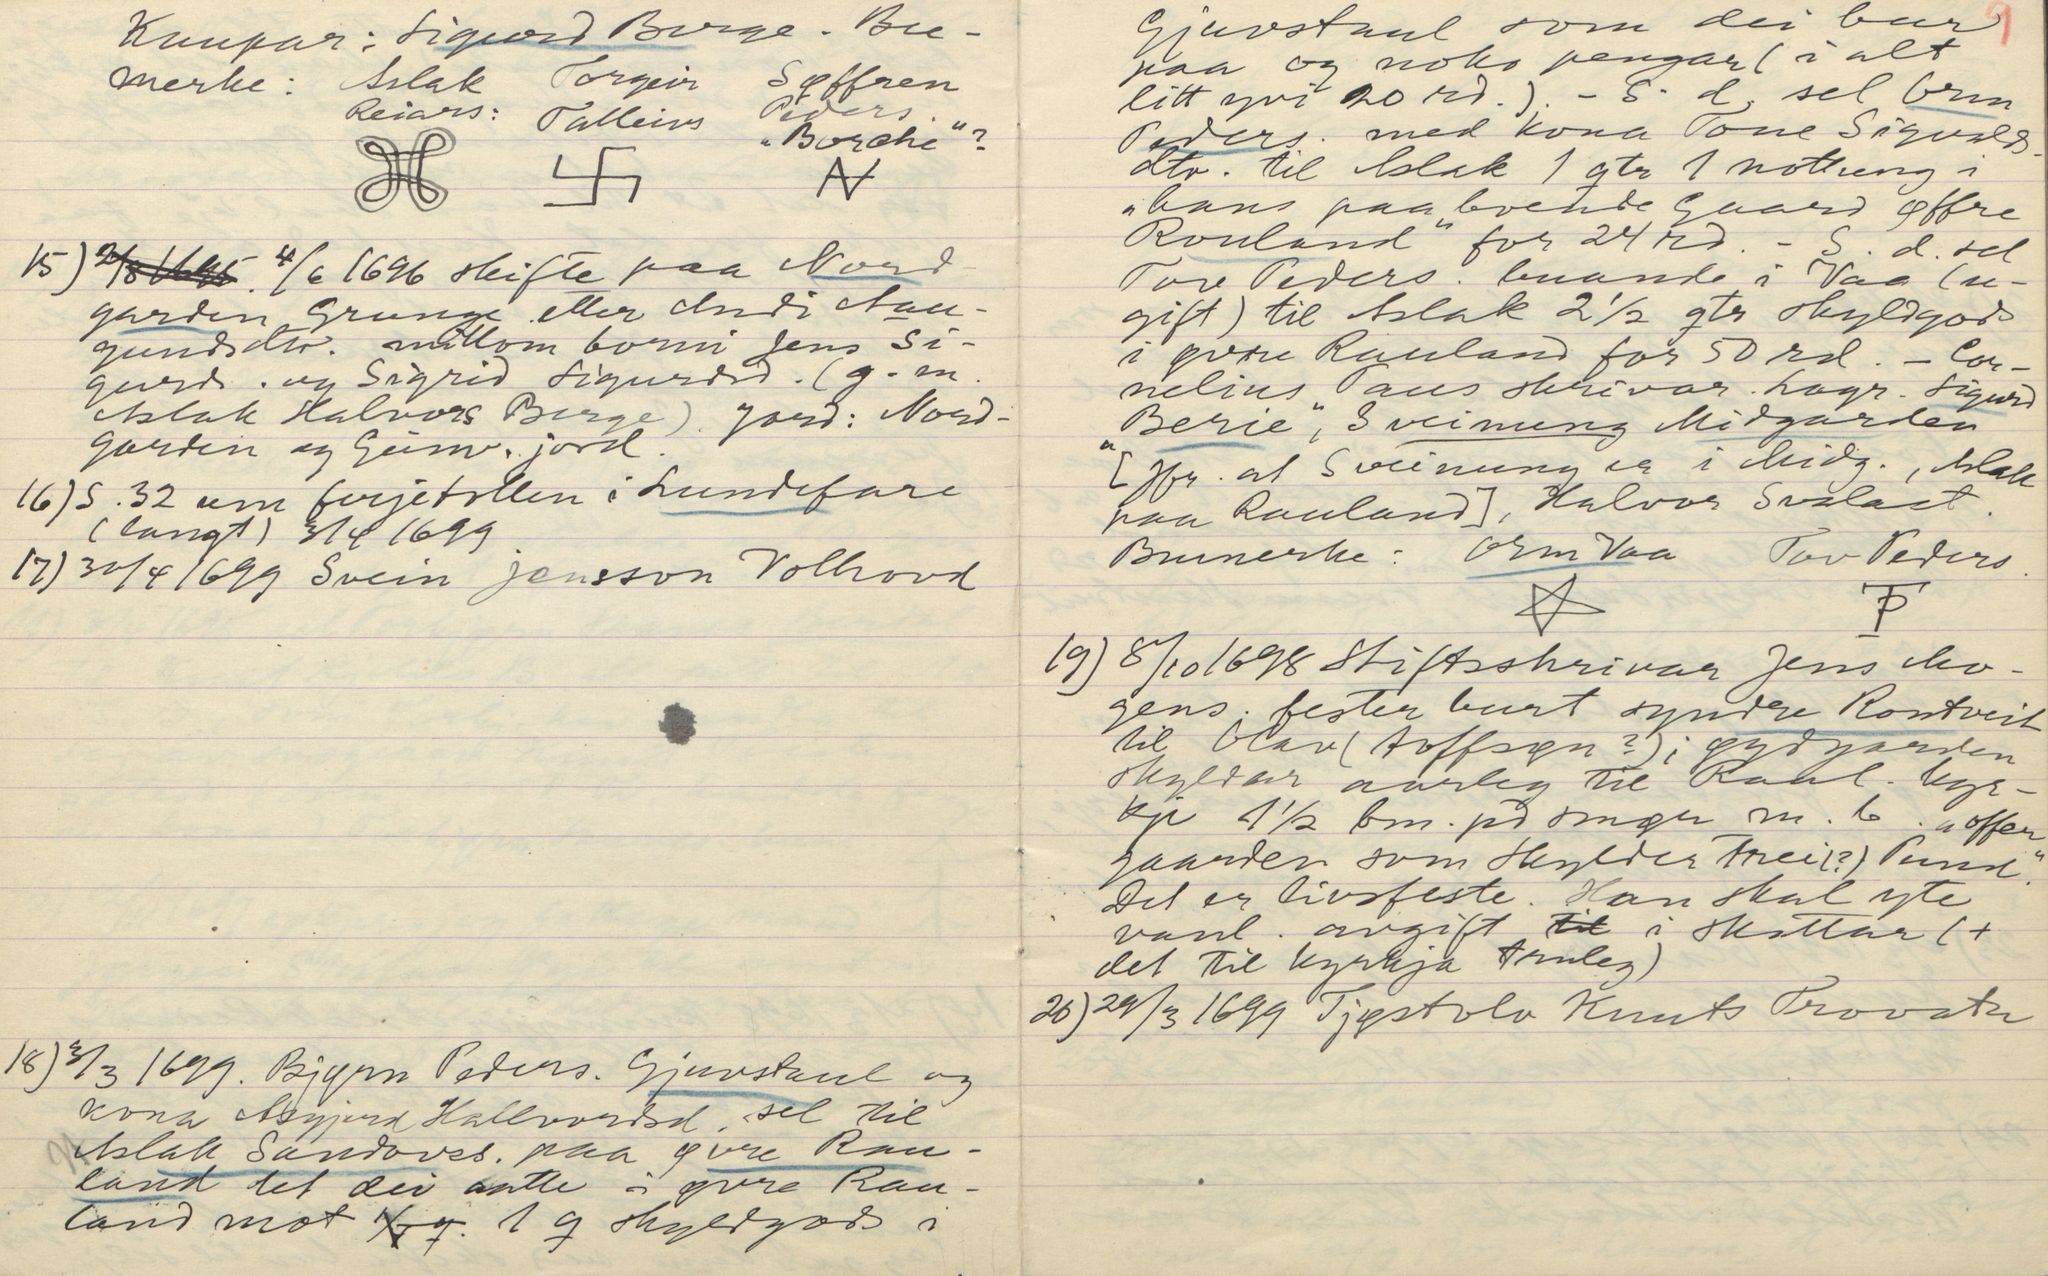 Kaupar: Sigurd Berge. Bu-
merke: Aslak Torgeir Søffren
Reiars: Talleivs Peders.
"Borche"?
15) 4/6 1696 skifte paa Nord-
garden Grunge etter Aa-
gundsdtr. millom borni Jens Si-
gurds. og Sigrid Sigurdsd. (g. m.
Aslak Halvors Berge). Jord: Nord-
garden og jord.
16) S. 32 um ferjetollen i Lundefare
(langt) 3/4 1699
17) 30/4 1699 Svein Jensson Vollrovd
18) 3/3 1699. Bjørn Peders. Gjuvstaul og
kona Asgjerd Hallvordsd. sel til
Aslak Sandovss. paa øvre Rau-
land det dei aatte i øvre Rau-
land mot 1 q skyldgods i
9
Gjuvstaul som dei bur
paa og noko pengar (i alt
litt yvi 20 rd.). - S. d. sel Orm
Peders. med kona Tone Sigurds-
dtr. til Aslak 1 qtr 1 nottung i
"hans paaboende Gaard øffre
Rouland" for 24 rd. - S. d. sel
Tov Peders. buande i Vaa (u-
gift) til Aslak 2 1/2 qtr skyldgods
i øvre Rauland for 50 rd. - Cor-
nelius Paus skrivar. Lagr. Sigurd
Berie", Sveinung Midgarden
"[Jfr. at Sveinung er i Midg., Aslak
paa Rauland], Halvor Svalast.
Bumerke: Orm Vaa Tov Peders.
TP
19) 8/10 1698 Stiftsskrivar Jens Mo-
gens. fester burt syndre Rontveit
til Olav (Aoffsøn?) i øydgarden
skyldar aarleg til Raul. kyr-
kje 1 1/2 bm. pd smør m. b. "offer
gaarden som skylder trei(?) Pund."
Det er livsfeste. Han skal yte
vanl. avgift til i skattar (+
det til kyrkja truleg)
20) 29/3 1699 Tjøstolv Knuts Trovatn